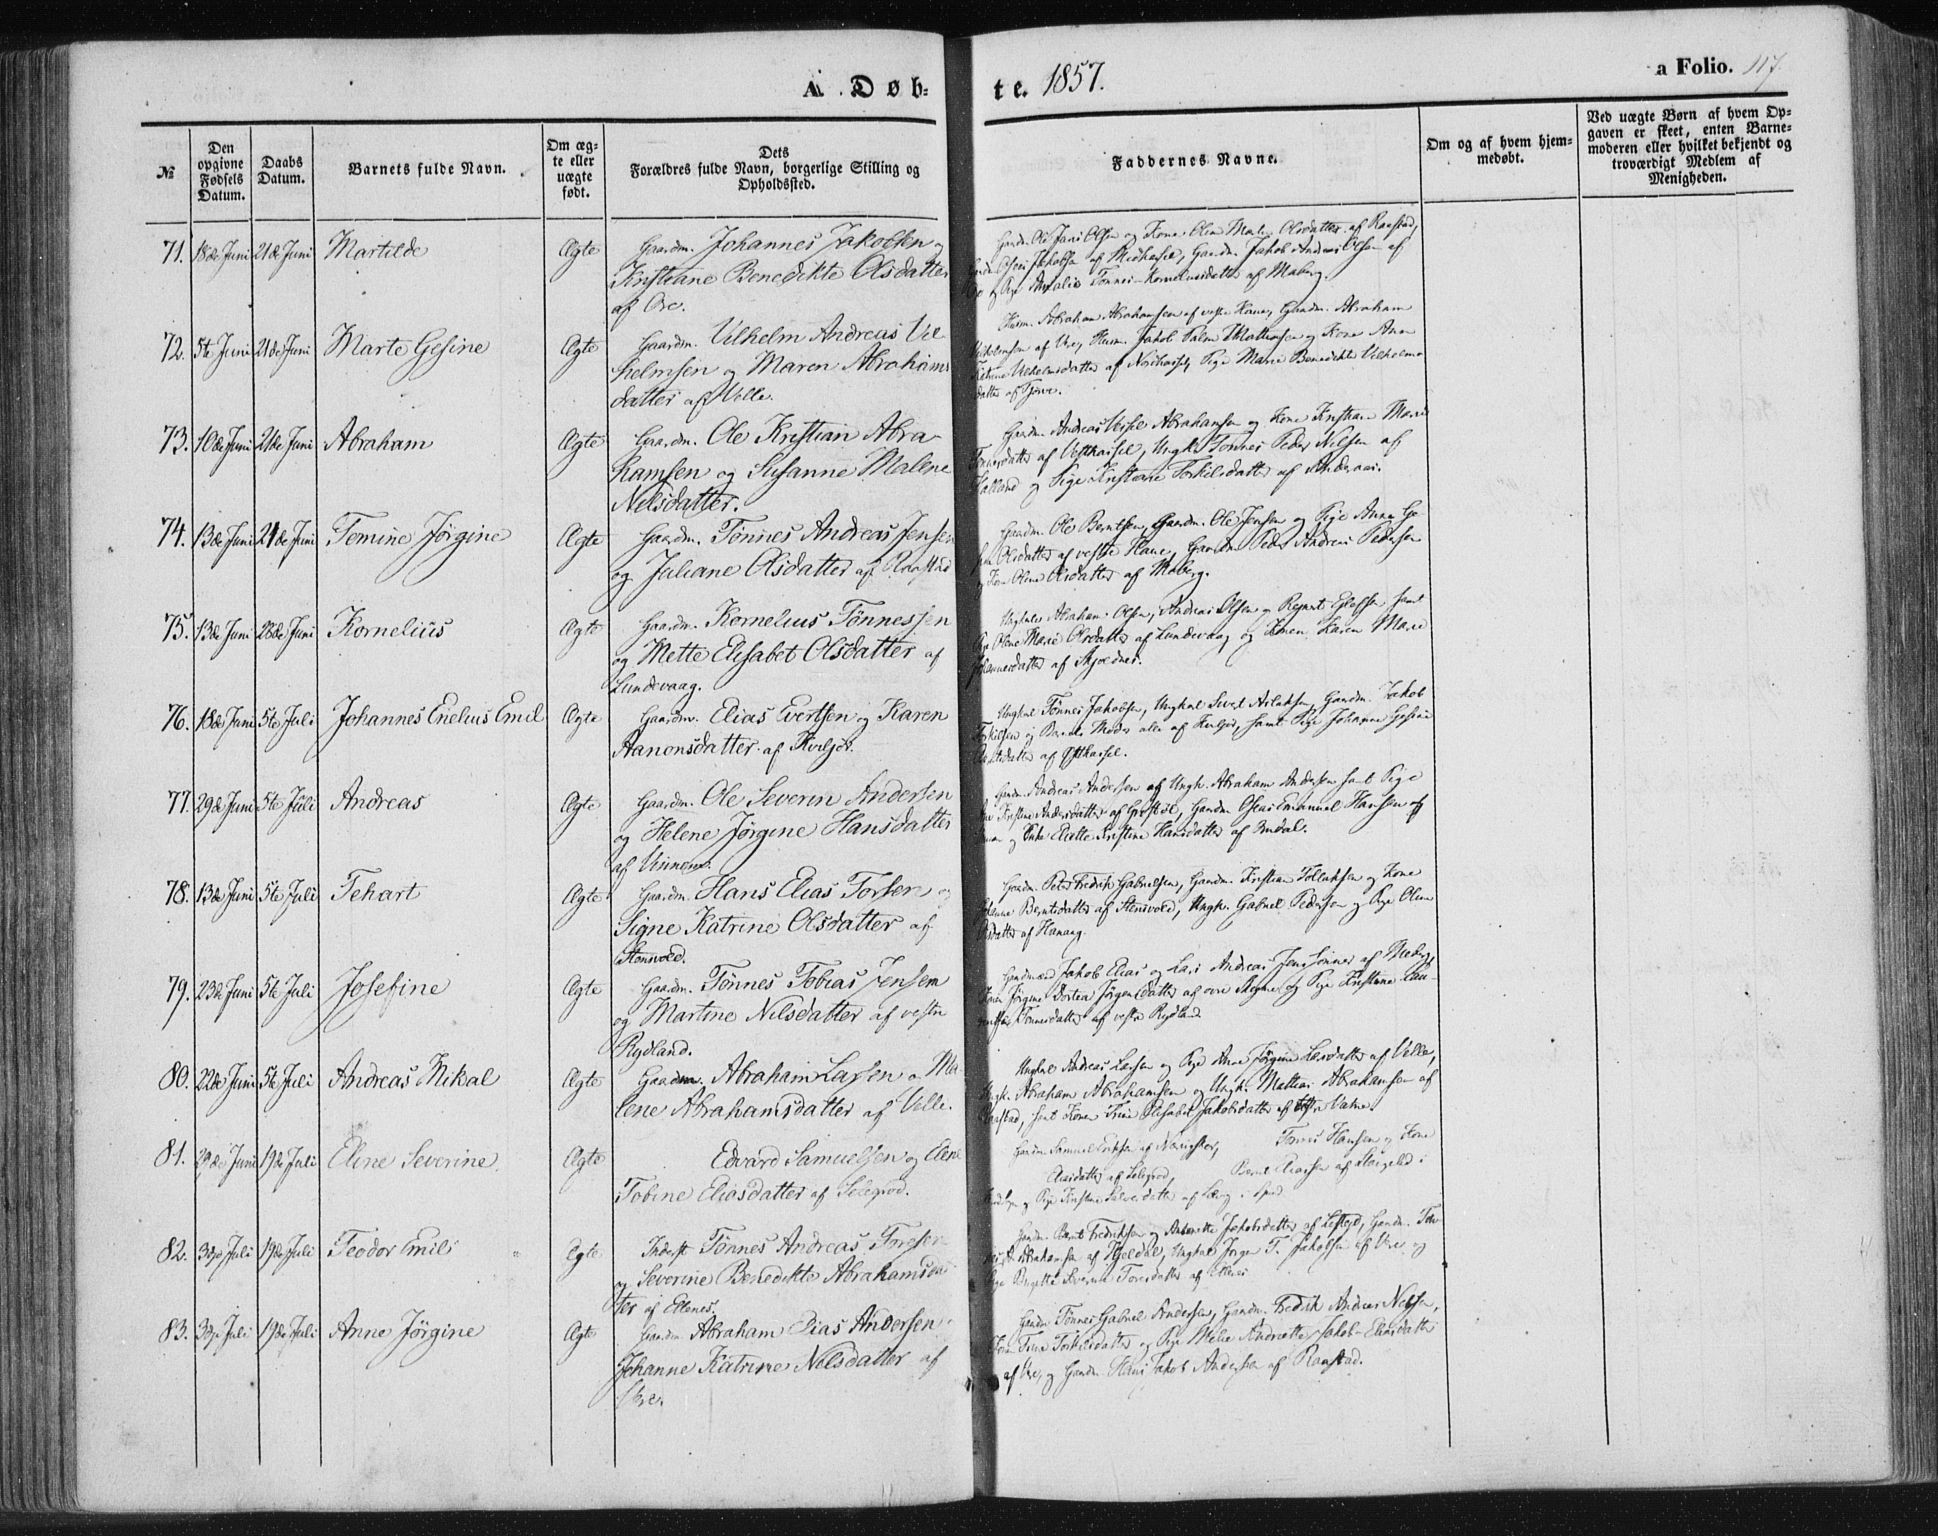 A. Døb-
te. 1857.
a Folio. 117.
№
Den opgivne Fødsels Datum.
Daabs Datum.
Barnets fulde Navn.
Om ægte eller uægte født.
Dets Forældres fulde Navn, borgerlige Stilling og Opholdssted.
Faddernes Navne.
Om og af hvem hjemmedøbt.
Ved uægte Børn af hvem Opgaven er skeet, enten Barnemoderen eller hvilket bekjendt og troværdigt Medlem af Menigheden.
71. 18de Juni 21de Juni Martilde Ægte Gaardm. Johannes Jakobsen og
Kristiane Benedikte Olsdatter
af Ore.
Gaardm. Ole Jansi Olsen og Kone Olene Malene Olsdatter af Raastad,
af Midhassel, Gaardm. Jakob Andreas Olsen af
og Pige Amalie Tønnes-Korneliusdatter af Maberg.
72. 5te Juni 21de Juni Marte Gesine Ægte Gaardm. Vilhelm Andreas Vil-
helmsen og Maren Abrahams
datter af Velle.
Husm. Abraham Abrahamsen af vestre Hane, Gaardm. Abraham
Vilhelmsen af Ore, Husm. Jakob Palm Mathiasen og Kone Ane
Katrine Vilhelmsdatter af Nordhassel, Pige Marie Benedikte Vilhelms
datter af Tjørve.
73. 10de Juni 21de Juni Abraham Ægte Gaardm. Ole Kristian Abra-
hamsen og Susanne Malene
Nelsdatter.
Gaardm. Andreas Abrahamsen og Kone Kristiane Marie
Tønnesdatter af Vesthassel, Ungk. Tønnes Peder Nilsen af
Halland og Pige Kristiane Torkilsdatter af
74. 13de Juni 21de Juni Temine Jørgine Ægte Gaardm. Tønnes Andreas Jensen
og Juliane Olsdatter af Raastad
Gaardm. Ole Berntsen, Gaardm. Ole Jensen og Pige Anne Ge-
sine Olsdatter af vestre Hane, Gaardm. Peder Andreas Pedersen
og Kone Oline Olsdatter af Maberg.
75. 13de Juni 28de Juni Kornelius Ægte Gaardm. Kornelius Tønnessen
og Mette Elisabet Olsdatter af
Lundevaag.
Ungkarle Abraham Olsen, Andreas Olsen og Reinert samt
Pige Olene Marie Olsdatter af Lundevaag og Konen Karen Marie
Johannesdatter af
76. 18de Juni 5te Juli Johannes Enelius Emil Ægte Gaardm. Elias Evertsen og Karen
Aanonsdatter af Kviljo.
Ungkal Tønnes Jakobsen, Ungkal Sivert Aslaksen, Gaardm. Jakob
Torkilsen og Barnets Moder alle af Kviljo, samt Pige Johanne Gesine
af Østhassel.
77. 29de Juni 5te Juli Andreas Ægte Gaardm. Ole Severin Andersen
og Helene Jørgine Hansdatter
af Unnem.
Gaardm. Andreas Andersen og Ungk. Abraham Andersen samt Pige
Ane Kristine Andersdatter af Grøstøl, Gaardm. Oseas Emanuel Hansen af
og Enke Elette Kristine Hansdatter af
78. 13de Juni 5te Juli Tehart Ægte Gaardm. Hans Elias Torsen og
Signe Katrine Olsdatter af
Stensvold.
Gaardm. Peter Fredrik Gabrielsen, Gaardm. Kristian Tollaksen og Kone
Johanne Berntsdatter af Stensvold, Ungk. Gabriel Pedersen og Pige Oline
Olsdatter af Hanang.
79. 23de Juni 5te Juli Josefine Ægte Gaardm. Tønnes Tobias Jensen
og Martine Nilsdatter af vestre
Rydland.
Gaardmænd Jakob Elias og Lars Andreas Jens sønner af Maberg,
Kone Jørgine Dortea Jørgensdatter af ovre og Pige Kristiane Lau-
Tønnesdatter af vestre Rydland
80. 22de Juni 5te Juli Andreas Mikal Ægte Gaardm. Abraham Larsen og Ma-
lene Abrahamsdatter af Velle.
Ungkal Andreas Larsen og Pige Ane Jørgine Larsdatter af Velle,
Ungk. Abraham Abrahamsen og Ungk. Mathias Abrahamsen af
Raastad, samt Kone Trine Elisabet Jakobsdatter af Vatne.
81. 29de Juni 19de Juli Eline Severine Ægte Edvard Samuelsen og Elene
Tobine Eliasdatter af Selegrod.
Gaardm. Samuel Eriksen af Tønnes Hansen og Kone
Eliasdatter af Selegrod, Bernt Eliassen af i
og Pige Kristine af i Spind
82. 3dje Juli 19de Juli Teodor Emil Ægte Inderst Tønnes Andreas Torsen
og Severine Benedikte Abrahamsdat
ter af Ellenes.
Gaardm. Bernt Fredriksen og Antonette Jakobsdatter af Gaardm. Tøn-
nes A. Abrahamsen af Kjeldal, Ungkal Jørgen T. Jakobsen af Ore og
Pige Birgitte Severine Torsdatter af Ellenes
83. 3dje Juli 19de Juli Anne Jørgine Ægte Gaardm. Abraham Elias Andersen
Johanne Katrine Nilsdatter af
Ore.
Gaardm. Tønnes Gabriel Andersen, Gaardm. Fredrik Andreas Nelsen,
Kone Trine Torkilsdatter og Pige Malie Andriette Jakob-Eliasdatter
af Ore, og Gaardm. Hans Jakob Andersen af Raastad.